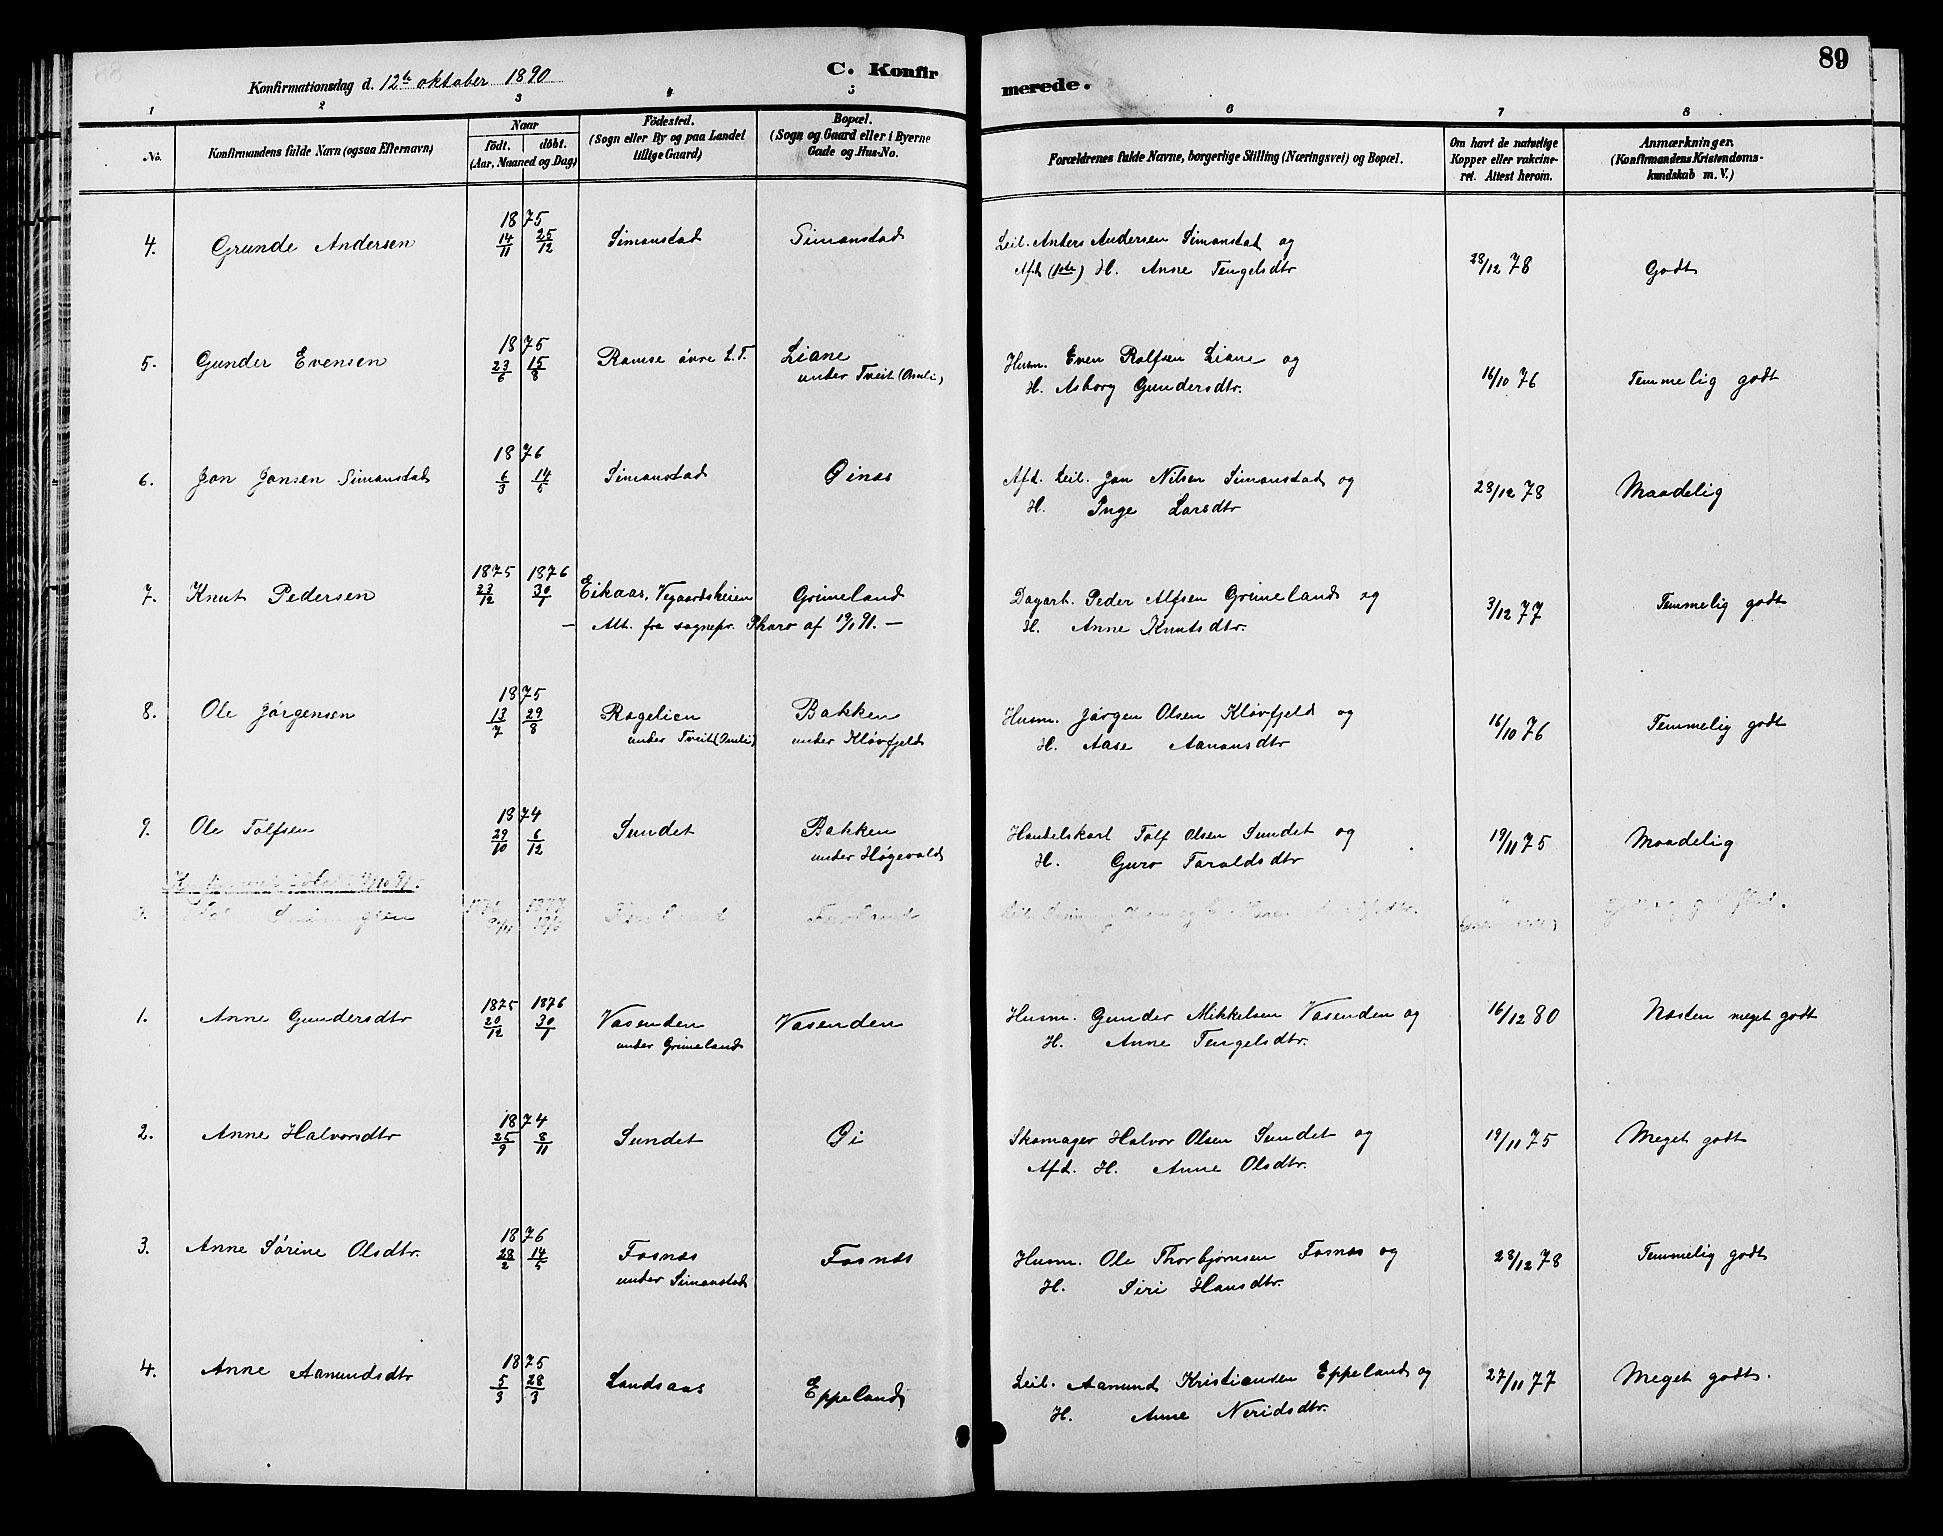 89
Konfirmationsdag d. 12te oktober 1890
C. Konfir
merede.
1 2 3 4 5 6 7 8
No.
Konfirmandens fulde Navn (ogsaa Efternavn)
Naar
födt. döbt.
(Aar, Maaned og Dag)
Födested.
(Sogn eller By og paa Landet
tillige Gaard)
Bopæl.
(Sogn og Gaard eller i Byerne
Gade og Hus-No.
Forældrenes fulde Navne, borgerlige Stilling (Næringsvei) og Bopæl.
Om havt de naturlige
Kopper eller vakcine-
ret. Attest herom.
Anmærkninger.
(Konfirmandens Kristendoms-
kundskab m. V.)
1875
4. Grunde Andersen 14/11 25/12 Simonstad Simonstad Leil. Anders Andersen Simonstad og
Afd. H. Anne Tengelsdtr 28/12 78 Godt
1875
5. Gunder Evensen 23/6 15/8 Ramse øvre L.T. Liane Husm. Even Rolfsen Liane og
under Tveit (Omli) H. Asborg Gundersdtr. 16/10 76 Temmelig godt
1876
6. Jon Jonsen Simonstad 6/3 14/5 Simonstad Øinæs Afd. Leil. Jon Nilsen Simonstad og
H. Inge Larsdtr 28/12 78 Maadelig
1875 1876
7. Knut Pedersen 23/12 30/1 Eikaas, Vegaardsheien Grimeland Dagarb. Peder Alfsen Grimeland og
— Att. fra sognepr. Pharo af 19/1 91. — H. Anne Knutsdtr. 3/12 77 Temmelig godt
1875
8. Ole Jørgensen 13/7 29/8 Rogelien Bakken Husm. Jørgen Olsen Kløvfjeld og
under Tveit (Omli) under Kløvfjeld H. Aase Aanonsdtr 16/10 76 Temmelig godt
1874
9. Ole Tolfsen 29/10 6/12 Sundet Bakken Handelskarl Tolf Olsen Sundet og
under Høgevold H. Guro Taraldsdtr 19/11 75 Maadelig
1875 1876
1. Anne Gundersdtr 20/12 30/1 Vasenden Vasenden Husm. Gunder Mikkelsen Vasenden og
under Grimeland H. Anne Tengelsdtr. 16/12 80 Næsten meget godt
1874
2. Anne Halvorsdtr 25/9 8/11 Sundet Øi Skomager Halvor Olsen Sundet og
Afd. H. Anne Olsdtr. 19/11 75 Meget godt
1876
3. Anne Sørine Olsdtr. 28/2 14/5 Fosnæs Fosnæs Husm. Ole Thorbjørnsen Fosnæs og
under Simonstad H. Siri Hansdtr. 28/12 78 Temmelig godt
1875
4. Anne Aamundsdtr 5/3 28/3 Landsaas Eppeland Leil. Aamund Kristiansen Eppeland og
H. Anne Neridsdtr. 27/11 77 Meget godt.